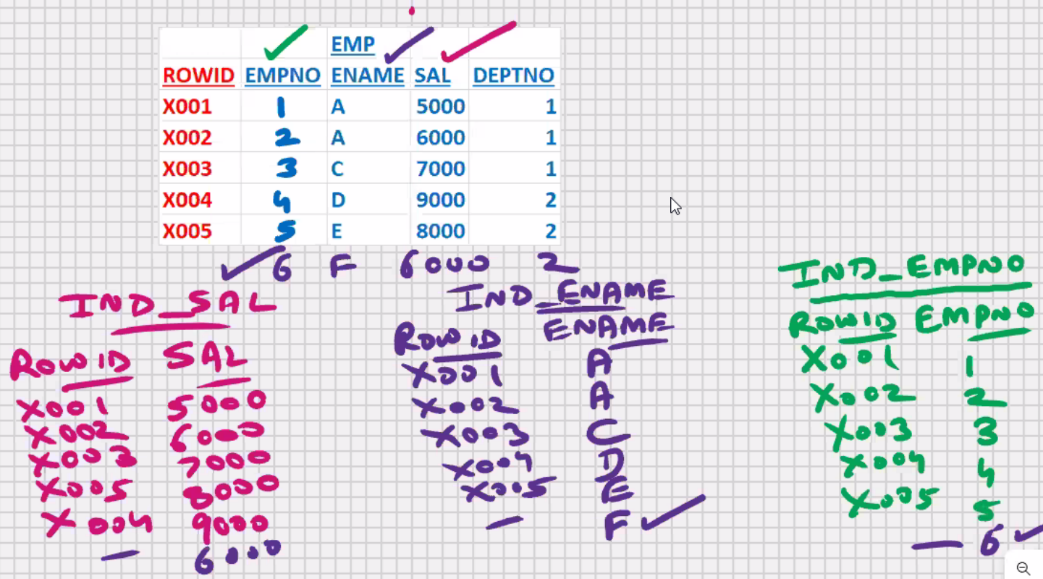 EMP
ROWID EMPNO ENAME SAL DEPTNO
X001 1 A 5000 1
X002 2 A 6000 1
X003 3 C 7000 1
X004 4 D 9000 2
X005 5 E 8000 2
6 F 6000 2
IND_SAL
ROWID SAL
X001 5000
X002 6000
X003 7000
X005 8000
X004 9000
— 6000
IND_ENAME
ROWID ENAME
X001 A
X002 A
X003 C
X004 D
X005 E
— F
IND_EMPNO
ROWID EMPNO
X001 1
X002 2
X003 3
X004 4
X005 5
— 6